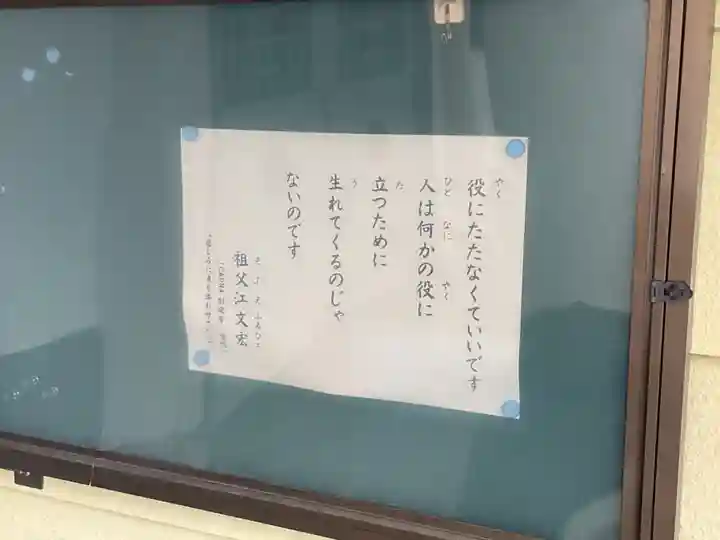 役にたたなくていいです
人は何かの役に
立つために
生れてくるのじゃ
ないのです
祖父江文宏